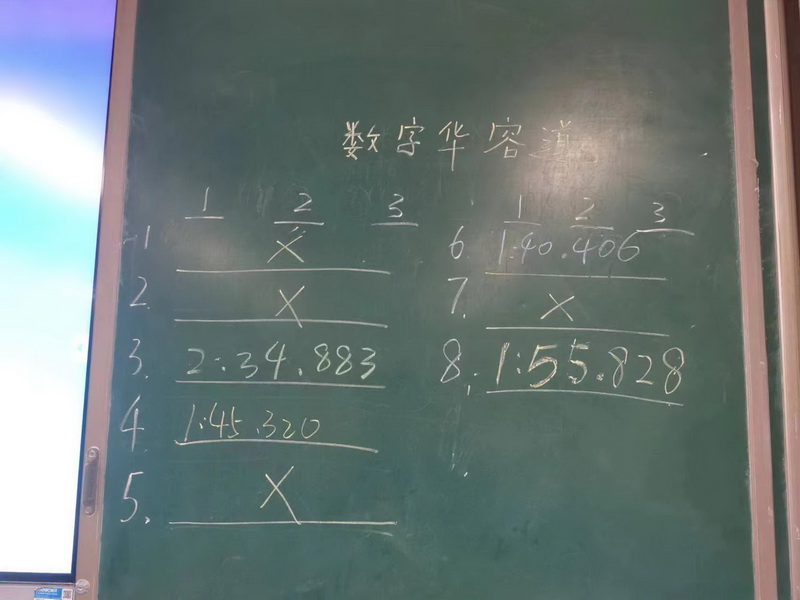 数字华容道
1 2 3
1. X
2. X
3. 2:34.883
4. 1:45.320
5. X
1 2 3
6. 1:40.406
7. X
8. 1:55.828